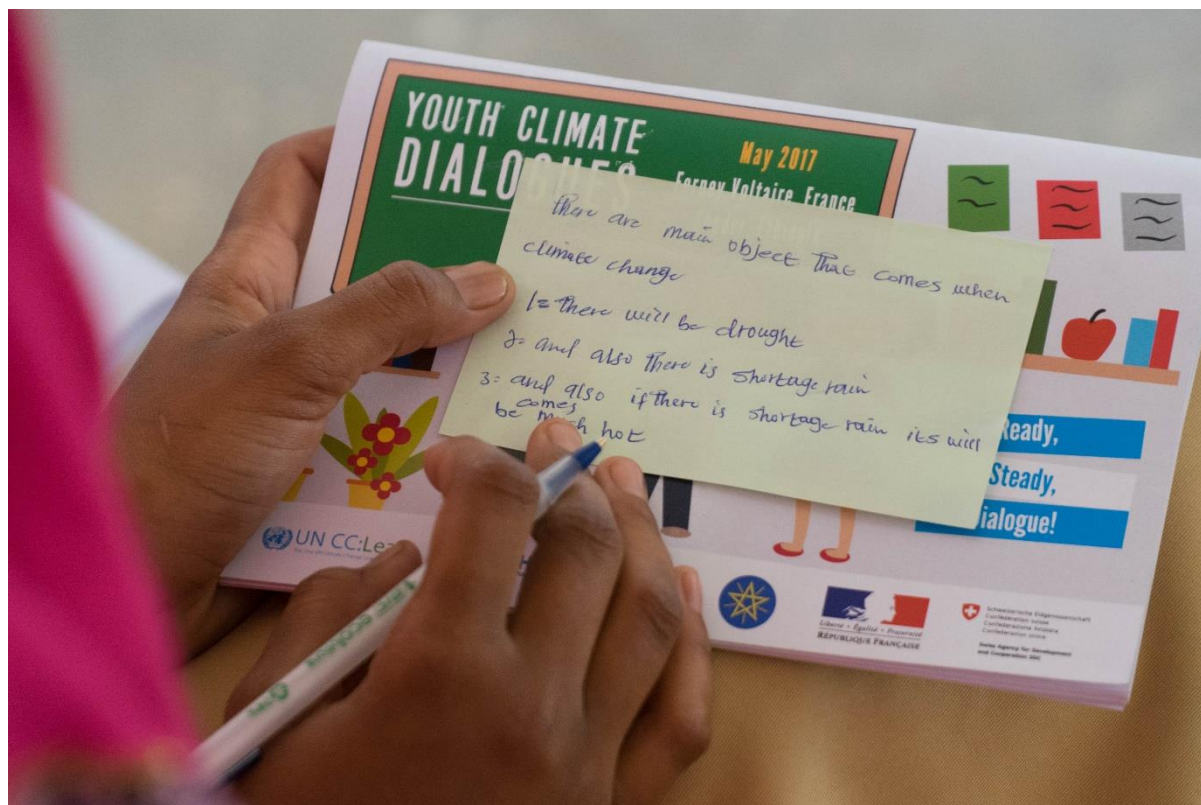 YOUTH CLIMATE
DIALOGUES
May 2017
Ferney Voltaire, France
there are main object that comes when
climate change
1= there will be drought
2= and also there is shortage rain
3= and also if there is shortage rain its will
comes
be much hot
Ready,
Steady,
Dialogue!
UN CC:Le
Liberté • Égalité • Fraternité
RÉPUBLIQUE FRANÇAISE
Schweizerische Eidgenossenschaft
Confédération suisse
Confederazione Svizzera
Confederaziun svizra
Swiss Agency for Development
and Cooperation SDC